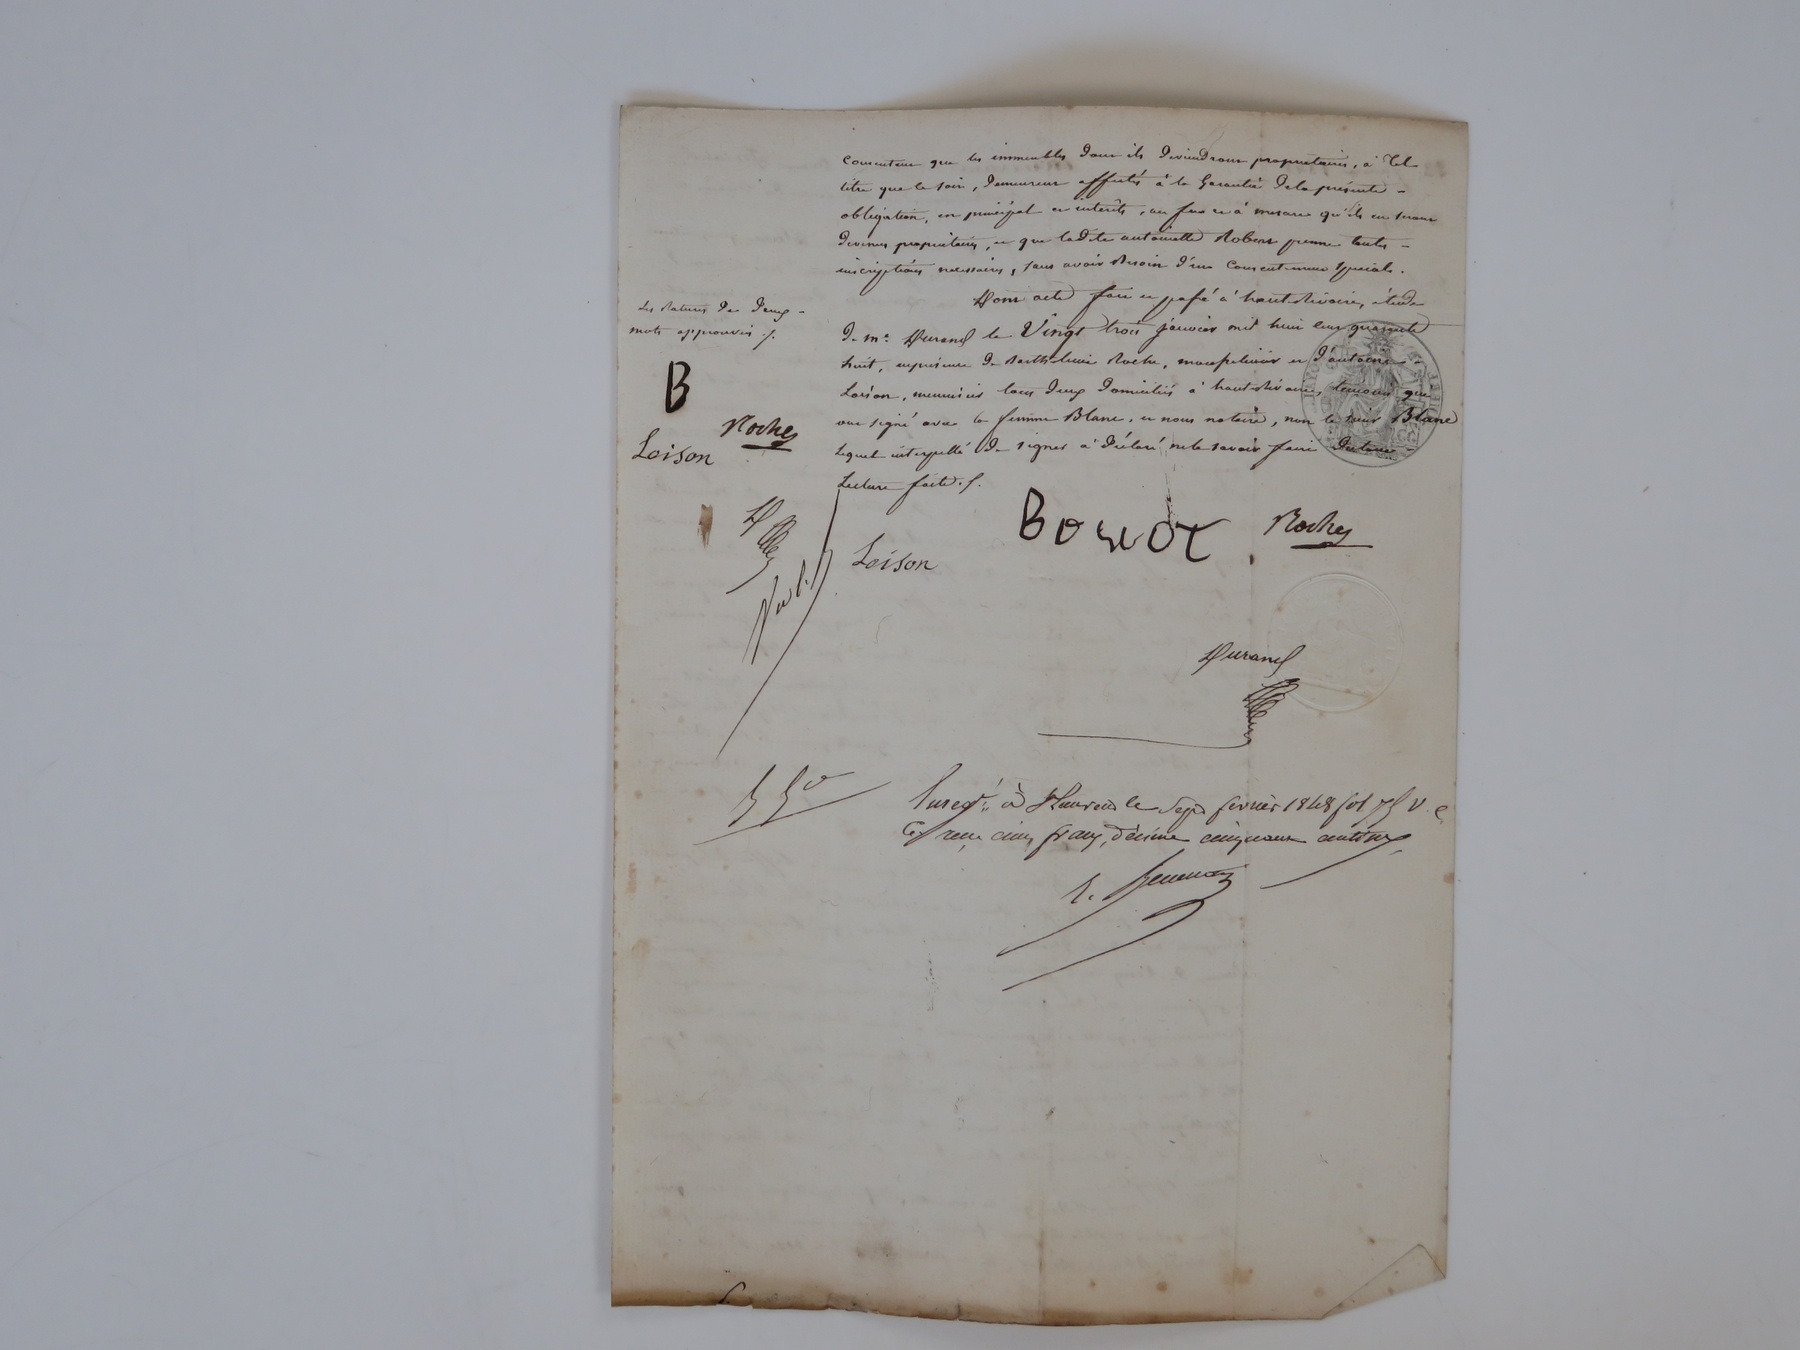 consentent que les immeubles dont ils deviendront propriétaires, à tel
titre que ce soit, demeurent affectés à la Garantie de la présente -
obligation, en principal et intérêts, au fur et à mesure qu'ils en seront
devenus propriétaires, et que ladite antoinette Robert prenne toutes -
inscriptions necessaires, sans avoir Besoin d'un Consentement special.
Dont acte fait et passé à haut-Rivoire, étude
de me. Durand le Vingt trois janvier mil huit cent quarante
huit, en présence de Barthelemi Roche, et d'antoine -
Loison, menuisier tous deux Domiciliés à haut-Rivoire, témoins qui
ont signé avec la femme Blanc, et nous notaire, non le sieur Blanc
lequel interpellé de signer a déclaré ne le savoir faire
Lecture faite ./.
Les Ratures de deux -
mots approuvées ./.
B
Roches
Loison
D
Loison
Roches
Durand
Enregt. à St Laurent le Sept fevrier 1848 fol 75 V. C.
reçu cinq francs, décime cinquante centimes